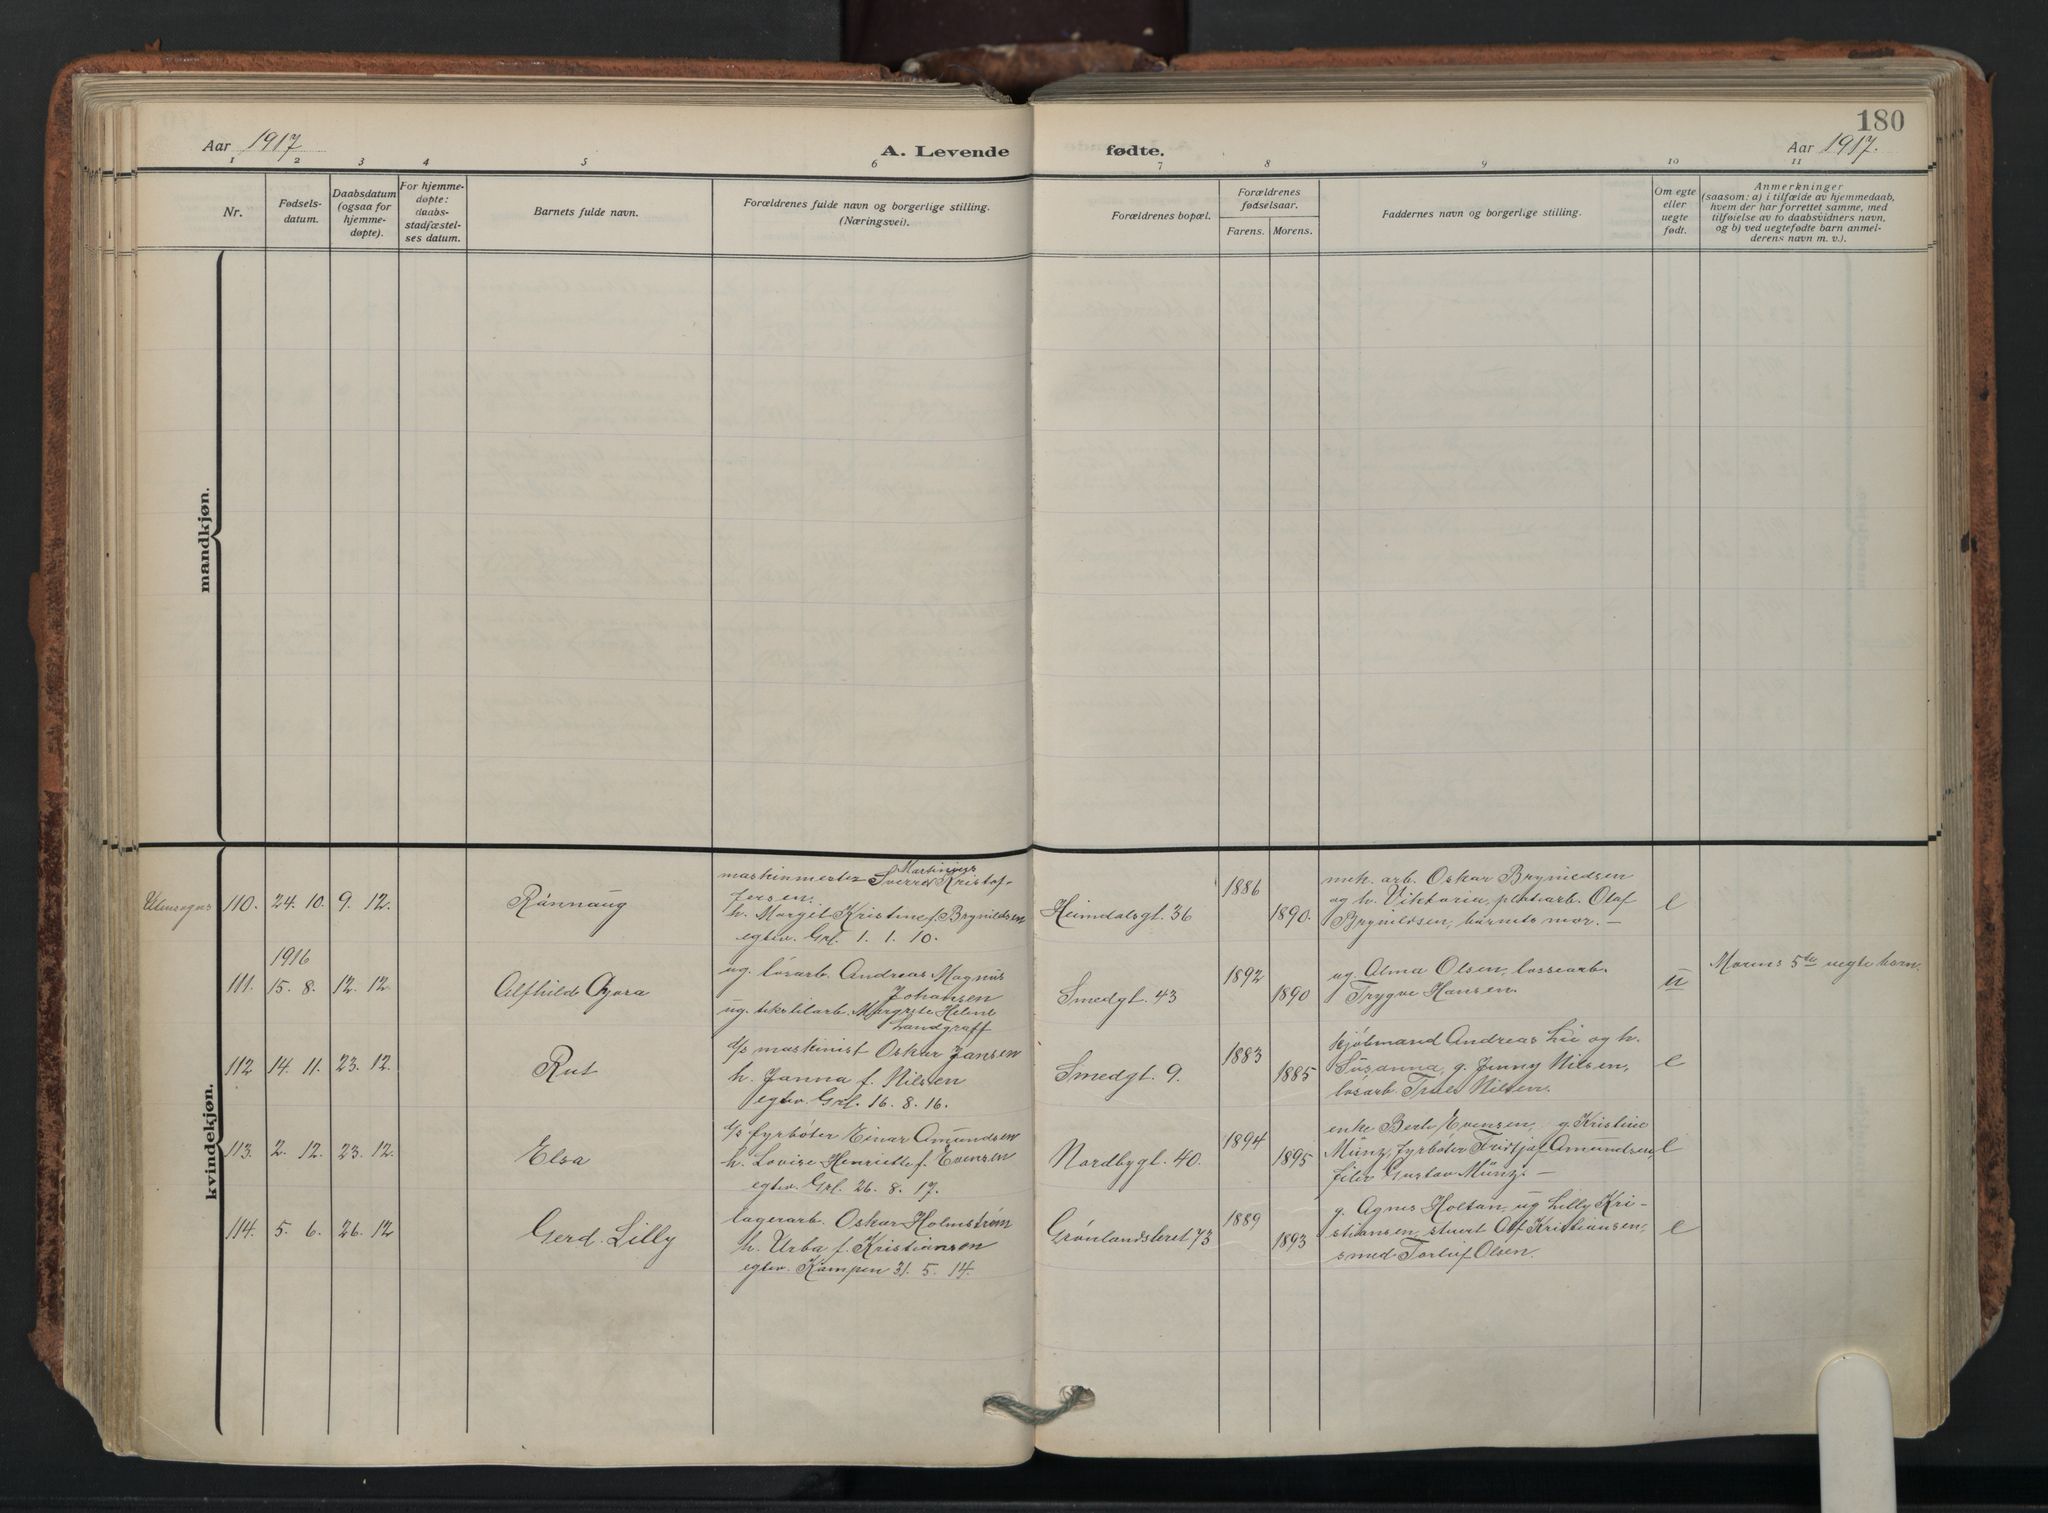 180
Aar 1917
A. Levende fødte.
Aar 1917.
1 2 3 4 5 6 7 8 9 10 11
Nr.
Fødsels-
datum.
Daabsdatum
(ogsaa for
hjemme-
døpte).
For hjemme-
døpte:
daabs-
stadfæstel-
ses datum.
Barnets fulde navn.
Forældrenes fulde navn og borgerlige stilling.
(Næringsvei).
Forældrenes bopæl.
Forældrenes
fødselsaar.
Farens. Morens.
Faddernes navn og borgerlige stilling.
Om egte
eller
uegte
født.
Anmerkninger
(saasom: a) i tilfælde av hjemmedaab,
hvem der har forrettet samme, med
tilføielse av to daabsvidners navn,
og b) ved uegtefødte barn anmel-
derens navn m. v.).
mandkjøn.
kvindekjøn.
Utensogns
110. 24. 10. 9. 12.
Rønnaug
Martinius
maskinmester Sverre Kristof-
fersen
h. Marget Kristine f. Brynildsen
egtev. Grl. 1. 1. 10.
Heimdalsgt. 36
1886
1890.
mek. arb. Oskar Brynildsen
og h. Viktoria, platearb. Olaf
Brynildsen, barnets mor. —
e
1916
111. 15. 8. 12. 12.
Alfhilde Gyora
ug. løsarb. Andreas Magnus
Johansen
ug. tekstilarb. Margrete Helene
Landgraff
Smedgt. 43
1892
1890
ug. Alma Olsen, lossearb.
Trygve Hansen.
u
Morens 5te uegte barn.
112 14. 11. 23. 12.
Rut
d/s maskinist Oskar Jansen
h. Janna f. Nilsen
egtev. Grl. 16. 8. 16.
Smedgt. 9.
1883
1885
kjøbmand Andreas Lie og h.
Susanna, g. Jenny Nilsen,
løsarb. Truls Nilsen.
e
113. 2. 12. 23. 12.
Elsa
d/s fyrbøter Einar Amundsen
h. Lovise Henriette f. Evensen
egtev. Grl. 26. 8. 17.
Nordbygt. 40.
1894
1895
enke Berte Evensen, g. Kristine
Münz, fyrbøter Fridtjof Amundsen,
filer Gustav Münz. —
e
114. 5. 6. 26. 12
Gerd Lilly
lagerarb. Oskar Holmstrøm
h. Urba f. Kristiansen
egtev. Kampen 31. 5. 14.
Grønlandsleret 73
1889
1893
g. Agnes Holtan, ug Lilly Kri-
stiansen, stuert Olf Kristiansen,
smed Torluf Olsen.
e